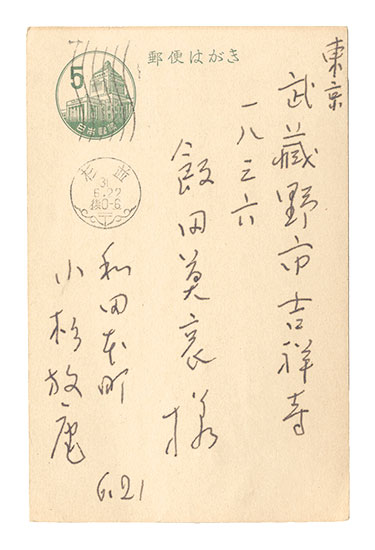 郵便はがき
5
日本郵便
杉並
31
6.22
後0-6
東京
武蔵野市吉祥寺
一八三六
飯田莫哀様
和田本町
小杉放庵
6.21